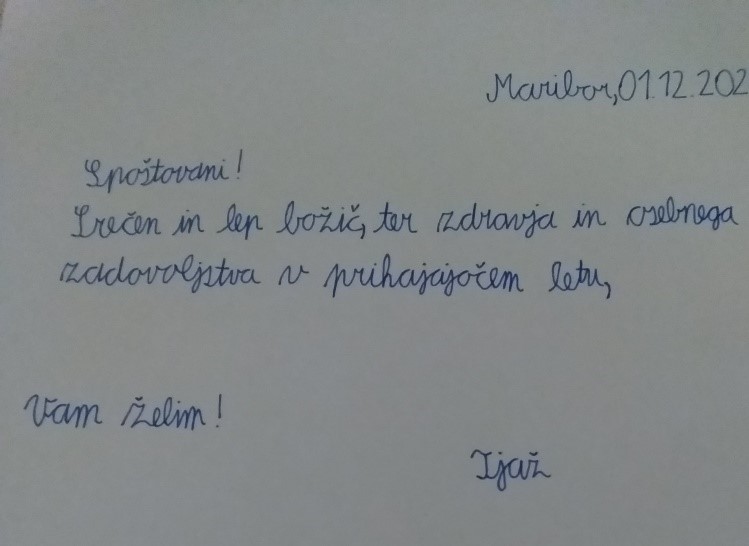 Maribor, 01.12.202
Spoštovani!
Srečen in lep božič, ter zdravja in osebnega
zadovoljstva v prihajajočem letu,
Vam želim!
Tjaž